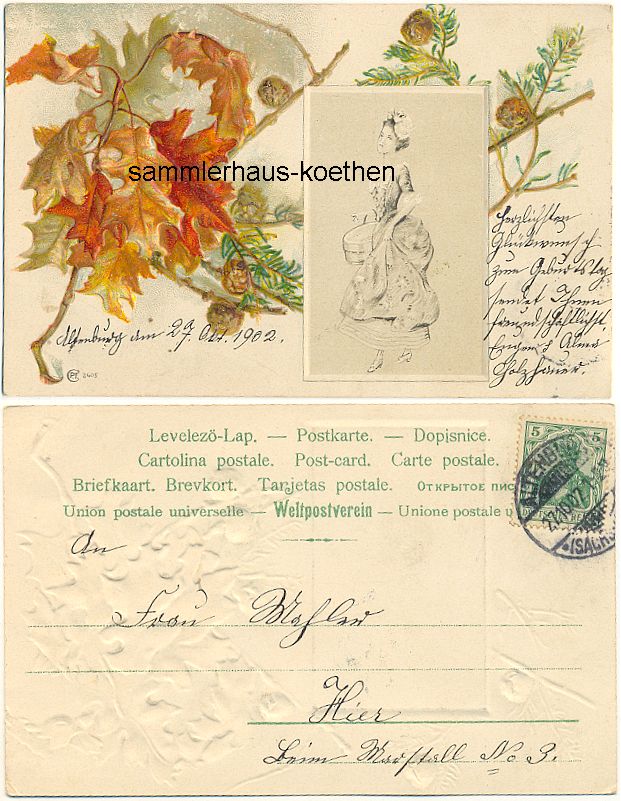 sammlerhaus-koethen
Herzlichsten
Glückwunsch
zum Geburtstag
sendet Ihnen
freundschaftlichst
Eugen & Alma
Holzhauer.
Altenburg am 29. Okt. 1902.
2405
Levelező-Lap. — Postkarte. — Dopisnice.
Cartolina postale. Post-card. Carte postale.
Briefkaart. Brevkort. Tarjetas postale. ОТКРЫТОЕ ПИС
Union postale universelle – Weltpostverein – Unione postale u
5 5
An
Frau Mahler
Hier
beim Marstall No 3.